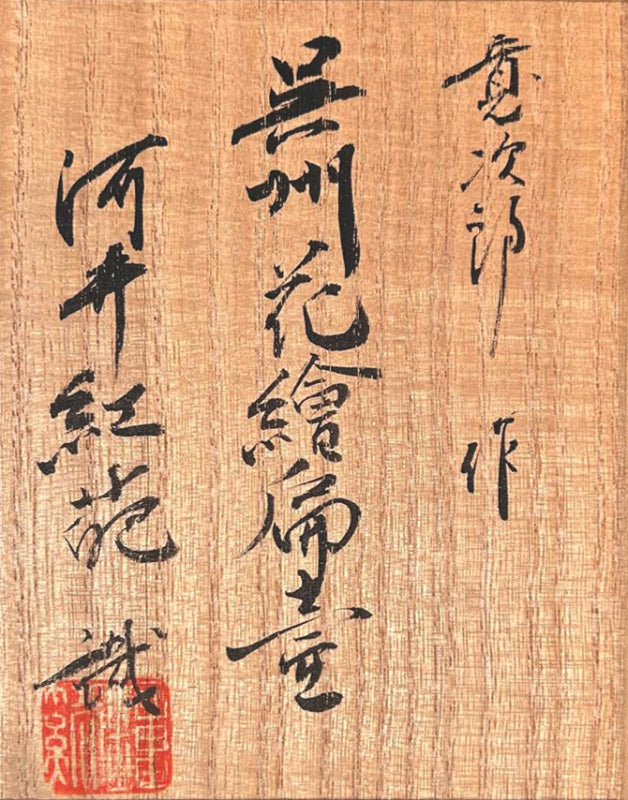 寛次郎 作
呉州花繪扁壷
河井紅葩 識